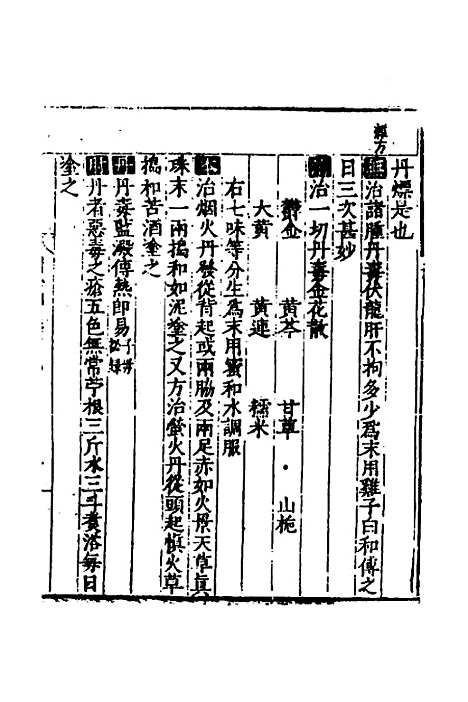 經方
丹熛是也
治諸腫丹毒伏龍肝不拘多少爲末用雞子白和傅之
日三次甚妙
治一切丹毒金花散
鬱金 黄芩 甘草 · 山梔
大黄 黄連 糯米
右七味等分生爲末用蜜和水調服
治烟火丹發從背起或兩脇及兩足赤如火景天草真
珠末一兩搗和如泥塗之又方治螢火丹從頭起愼火草
搗和苦酒塗之
丹毒藍澱傅熱即易 子母秘録
丹者惡毒之瘡五色無常苧根三斤水三斗煑浴每日
塗之